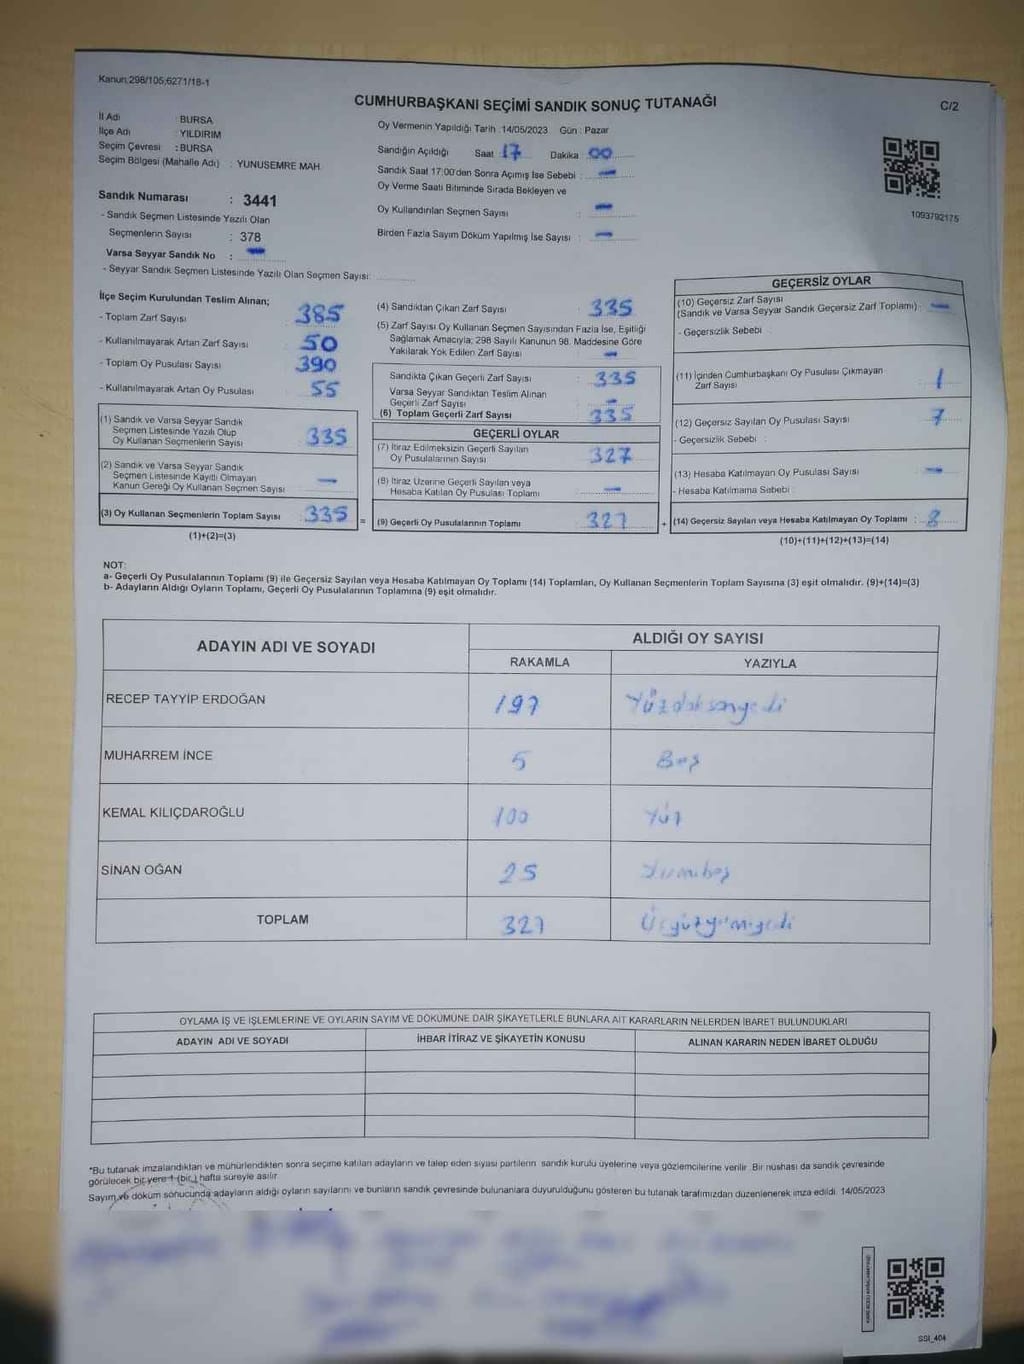 Kanun:298/105;6271/18-1
CUMHURBAŞKANI SEÇİMİ SANDIK SONUÇ TUTANAĞI
C/2
İl Adı : BURSA
İlçe Adı : YILDIRIM
Seçim Çevresi : BURSA
Seçim Bölgesi (Mahalle Adı) : YUNUSEMRE MAH.
Oy Vermenin Yapıldığı Tarih :14/05/2023 Gün : Pazar
Sandığın Açıldığı Saat 17 Dakika 00
Sandık Saat 17:00'den Sonra Açımış İse Sebebi : —
Oy Verme Saati Bitiminde Sırada Bekleyen ve
Oy Kullandırılan Seçmen Sayısı : —
Birden Fazla Sayım Döküm Yapılmış İse Sayısı : —
1093792175
Sandık Numarası : 3441
- Sandık Seçmen Listesinde Yazılı Olan
Seçmenlerin Sayısı : 378
Varsa Seyyar Sandık No : —
- Seyyar Sandık Seçmen Listesinde Yazılı Olan Seçmen Sayısı:
İlçe Seçim Kurulundan Teslim Alınan;
- Toplam Zarf Sayısı : 385
- Kullanılmayarak Artan Zarf Sayısı : 50
- Toplam Oy Pusulası Sayısı : 390
- Kullanılmayarak Artan Oy Pusulası : 55
(1) Sandık ve Varsa Seyyar Sandık
Seçmen Listesinde Yazılı Olup
Oy Kullanan Seçmenlerin Sayısı : 335
(2) Sandık ve Varsa Seyyar Sandık
Seçmen Listesinde Kayıtlı Olmayan
Kanun Gereği Oy Kullanan Seçmen Sayısı : —
(3) Oy Kullanan Seçmenlerin Toplam Sayısı : 335
(1)+(2)=(3)
=
(4) Sandıktan Çıkan Zarf Sayısı : 335
(5) Zarf Sayısı Oy Kullanan Seçmen Sayısından Fazla İse, Eşitliği
Sağlamak Amacıyla; 298 Sayılı Kanunun 98. Maddesine Göre
Yakılarak Yok Edilen Zarf Sayısı : —
Sandıkta Çıkan Geçerli Zarf Sayısı : 335
Varsa Seyyar Sandıktan Teslim Alınan
Geçerli Zarf Sayısı : —
(6) Toplam Geçerli Zarf Sayısı : 335
GEÇERLİ OYLAR
(7) İtiraz Edilmeksizin Geçerli Sayılan
Oy Pusulalarının Sayısı : 327
(8) İtiraz Üzerine Geçerli Sayılan veya
Hesaba Katılan Oy Pusulası Toplamı : —
(9) Geçerli Oy Pusulalarının Toplamı : 327
+
GEÇERSİZ OYLAR
(10) Geçersiz Zarf Sayısı
(Sandık ve Varsa Seyyar Sandık Geçersiz Zarf Toplamı) : —
- Geçersizlik Sebebi :
(11) İçinden Cumhurbaşkanı Oy Pusulası Çıkmayan
Zarf Sayısı : 1
(12) Geçersiz Sayılan Oy Pusulası Sayısı : 7
- Geçersizlik Sebebi :
(13) Hesaba Katılmayan Oy Pusulası Sayısı : —
- Hesaba Katılmama Sebebi :
(14) Geçersiz Sayılan veya Hesaba Katılmayan Oy Toplamı : 8
(10)+(11)+(12)+(13)=(14)
NOT:
a- Geçerli Oy Pusulalarının Toplamı (9) ile Geçersiz Sayılan veya Hesaba Katılmayan Oy Toplamı (14) Toplamları, Oy Kullanan Seçmenlerin Toplam Sayısına (3) eşit olmalıdır. (9)+(14)=(3)
b- Adayların Aldığı Oyların Toplamı, Geçerli Oy Pusulalarının Toplamına (9) eşit olmalıdır.
ADAYIN ADI VE SOYADI
ALDIĞI OY SAYISI
RAKAMLA YAZIYLA
RECEP TAYYİP ERDOĞAN 197 Yüzdoksanyedi
MUHARREM İNCE 5 Beş
KEMAL KILIÇDAROĞLU 100 Yüz
SİNAN OĞAN 25 Yirmibeş
TOPLAM 327 Üçyüzyirmiyedi
OYLAMA İŞ VE İŞLEMLERİNE VE OYLARIN SAYIM VE DÖKÜMÜNE DAİR ŞİKAYETLERLE BUNLARA AİT KARARLARIN NELERDEN İBARET BULUNDUKLARI
ADAYIN ADI VE SOYADI İHBAR İTİRAZ VE ŞİKAYETİN KONUSU ALINAN KARARIN NEDEN İBARET OLDUĞU
*Bu tutanak imzalandıktan ve mühürlendikten sonra seçime katılan adayların ve talep eden siyasi partilerin sandık kurulu üyelerine veya gözlemcilerine verilir. Bir nüshası da sandık çevresinde
görülecek bir yere 1 (bir) hafta süreyle asılır.
Sayım ve döküm sonucunda adayların aldığı oyların sayılarını ve bunların sandık çevresinde bulunanlara duyurulduğunu gösteren bu tutanak tarafımızdan düzenlenerek imza edildi. 14/05/2023
SSI_404